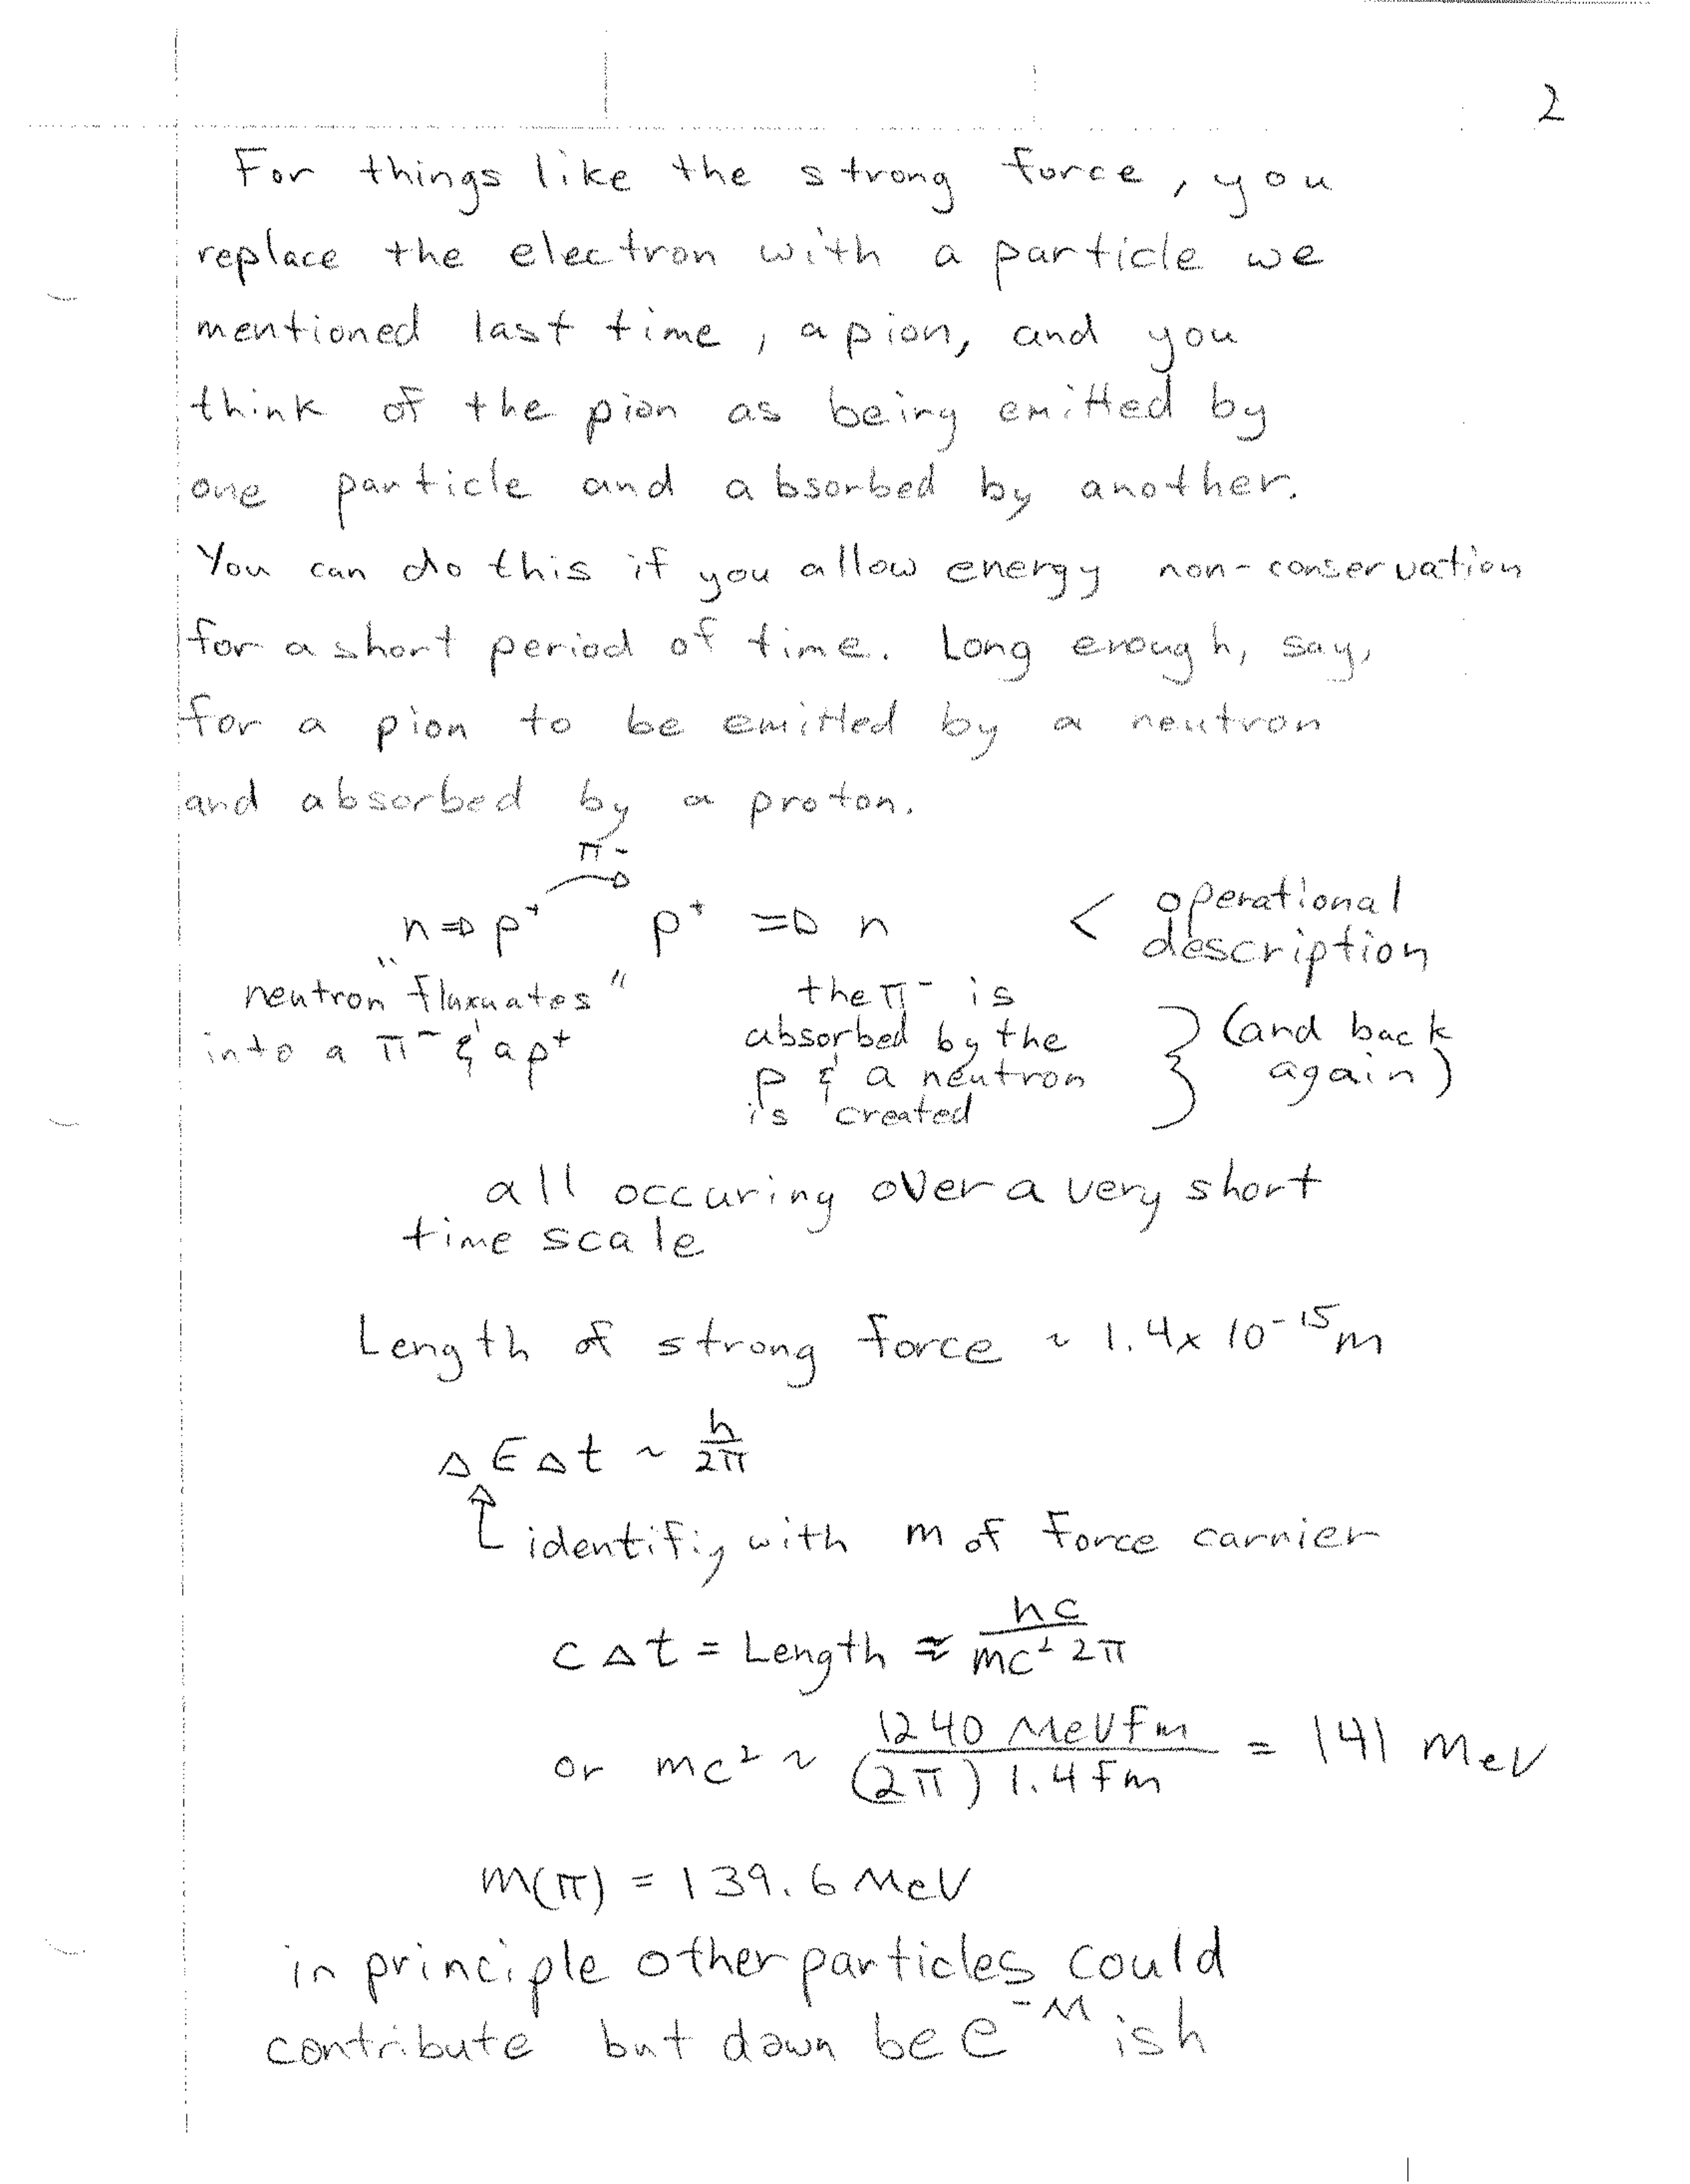 2
For things like the strong force, you
replace the electron with a particle we
mentioned last time, a pion, and you
think of the pion as being emitted by
one particle and absorbed by another.
You can do this if you allow energy non-conservation
for a short period of time. Long enough, say,
for a pion to be emitted by a neutron
and absorbed by a proton.
π-
n ⇒ p+ p+ ⇒ n < operational description
neutron "fluxuates"
into a π- & a p+
the π- is
absorbed by the
p & a neutron
is created
} (and back
again)
all occuring over a very short
time scale
Length of strong force ~ 1.4 x 10^-15 m
ΔEΔt ~ h/2π
identifiy with m of force carrier
cΔt = Length ≈ hc/mc² 2π
or mc² ~ 1240 MeV fm/(2π) 1.4 fm = 141 MeV
m(π) = 139.6 MeV
in principle other particles could
contribute but down be e^-M ish